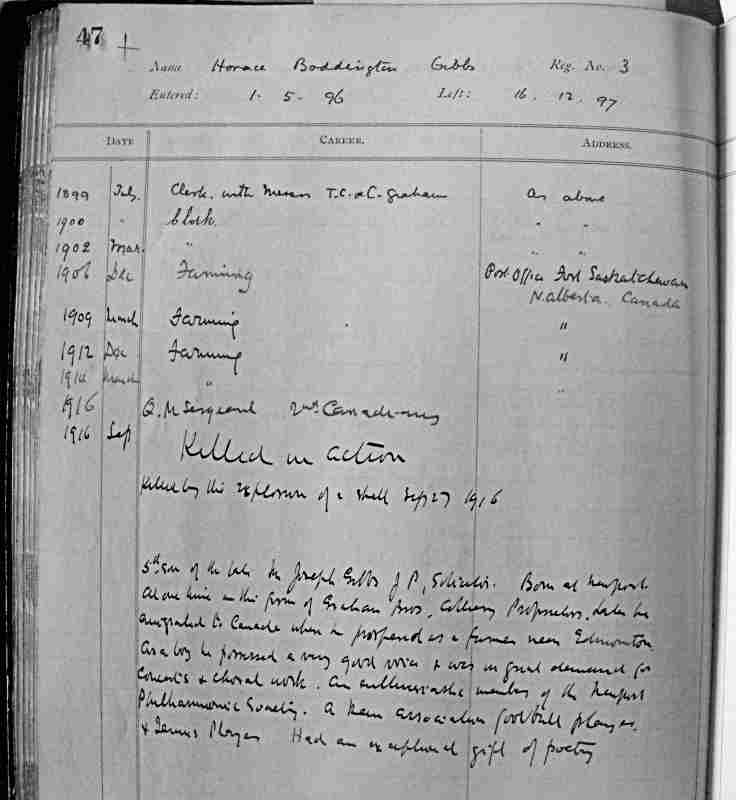 47
Name Horace Boddington Gibbs Reg. No. 3
Entered: 1. 5. 96 Left: 16. 12. 97
DATE CAREER. ADDRESS.
1899 July. Clerk. with Messrs T.C. & C. Graham As above
1900 " Clerk. " "
1902 Mar. " " "
1906 Dec Farming Post Office Fort Saskatchewan
N. Alberta. Canada
1909 March Farming "
1912 Dec Farming "
1914 March " "
1916 Q. M Sergeant 2nd Canadians
1916 Sep Killed in action
Killed by the explosion of a shell Sep 27 1916
5th son of the late Mr Joseph Gibbs J P, Solicitor. Born at Newport
At one time in the firm of Graham Bros, Colliery Proprietors, later he
emigrated to Canada when he prospered as a farmer near Edmonton
As a boy he possessed a very good voice & was in great demand for
Concerts & choral work. An enthusiastic member of the Newport
Philharmonic Society. A keen association football player.
& Tennis Player Had an exceptional gift of poetry